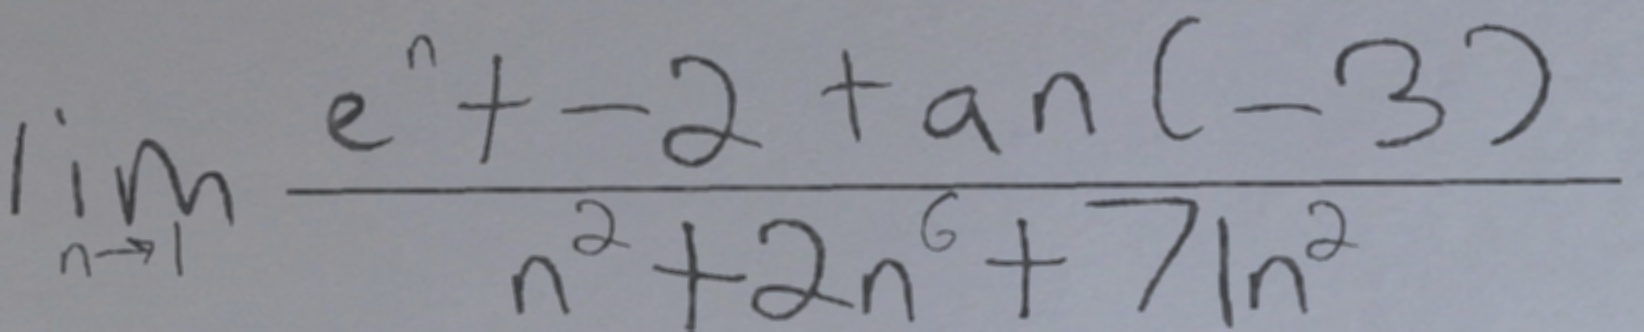 lim n→1 (e^n + -2 tan(-3)) / (n^2 + 2n^6 + 71n^2)